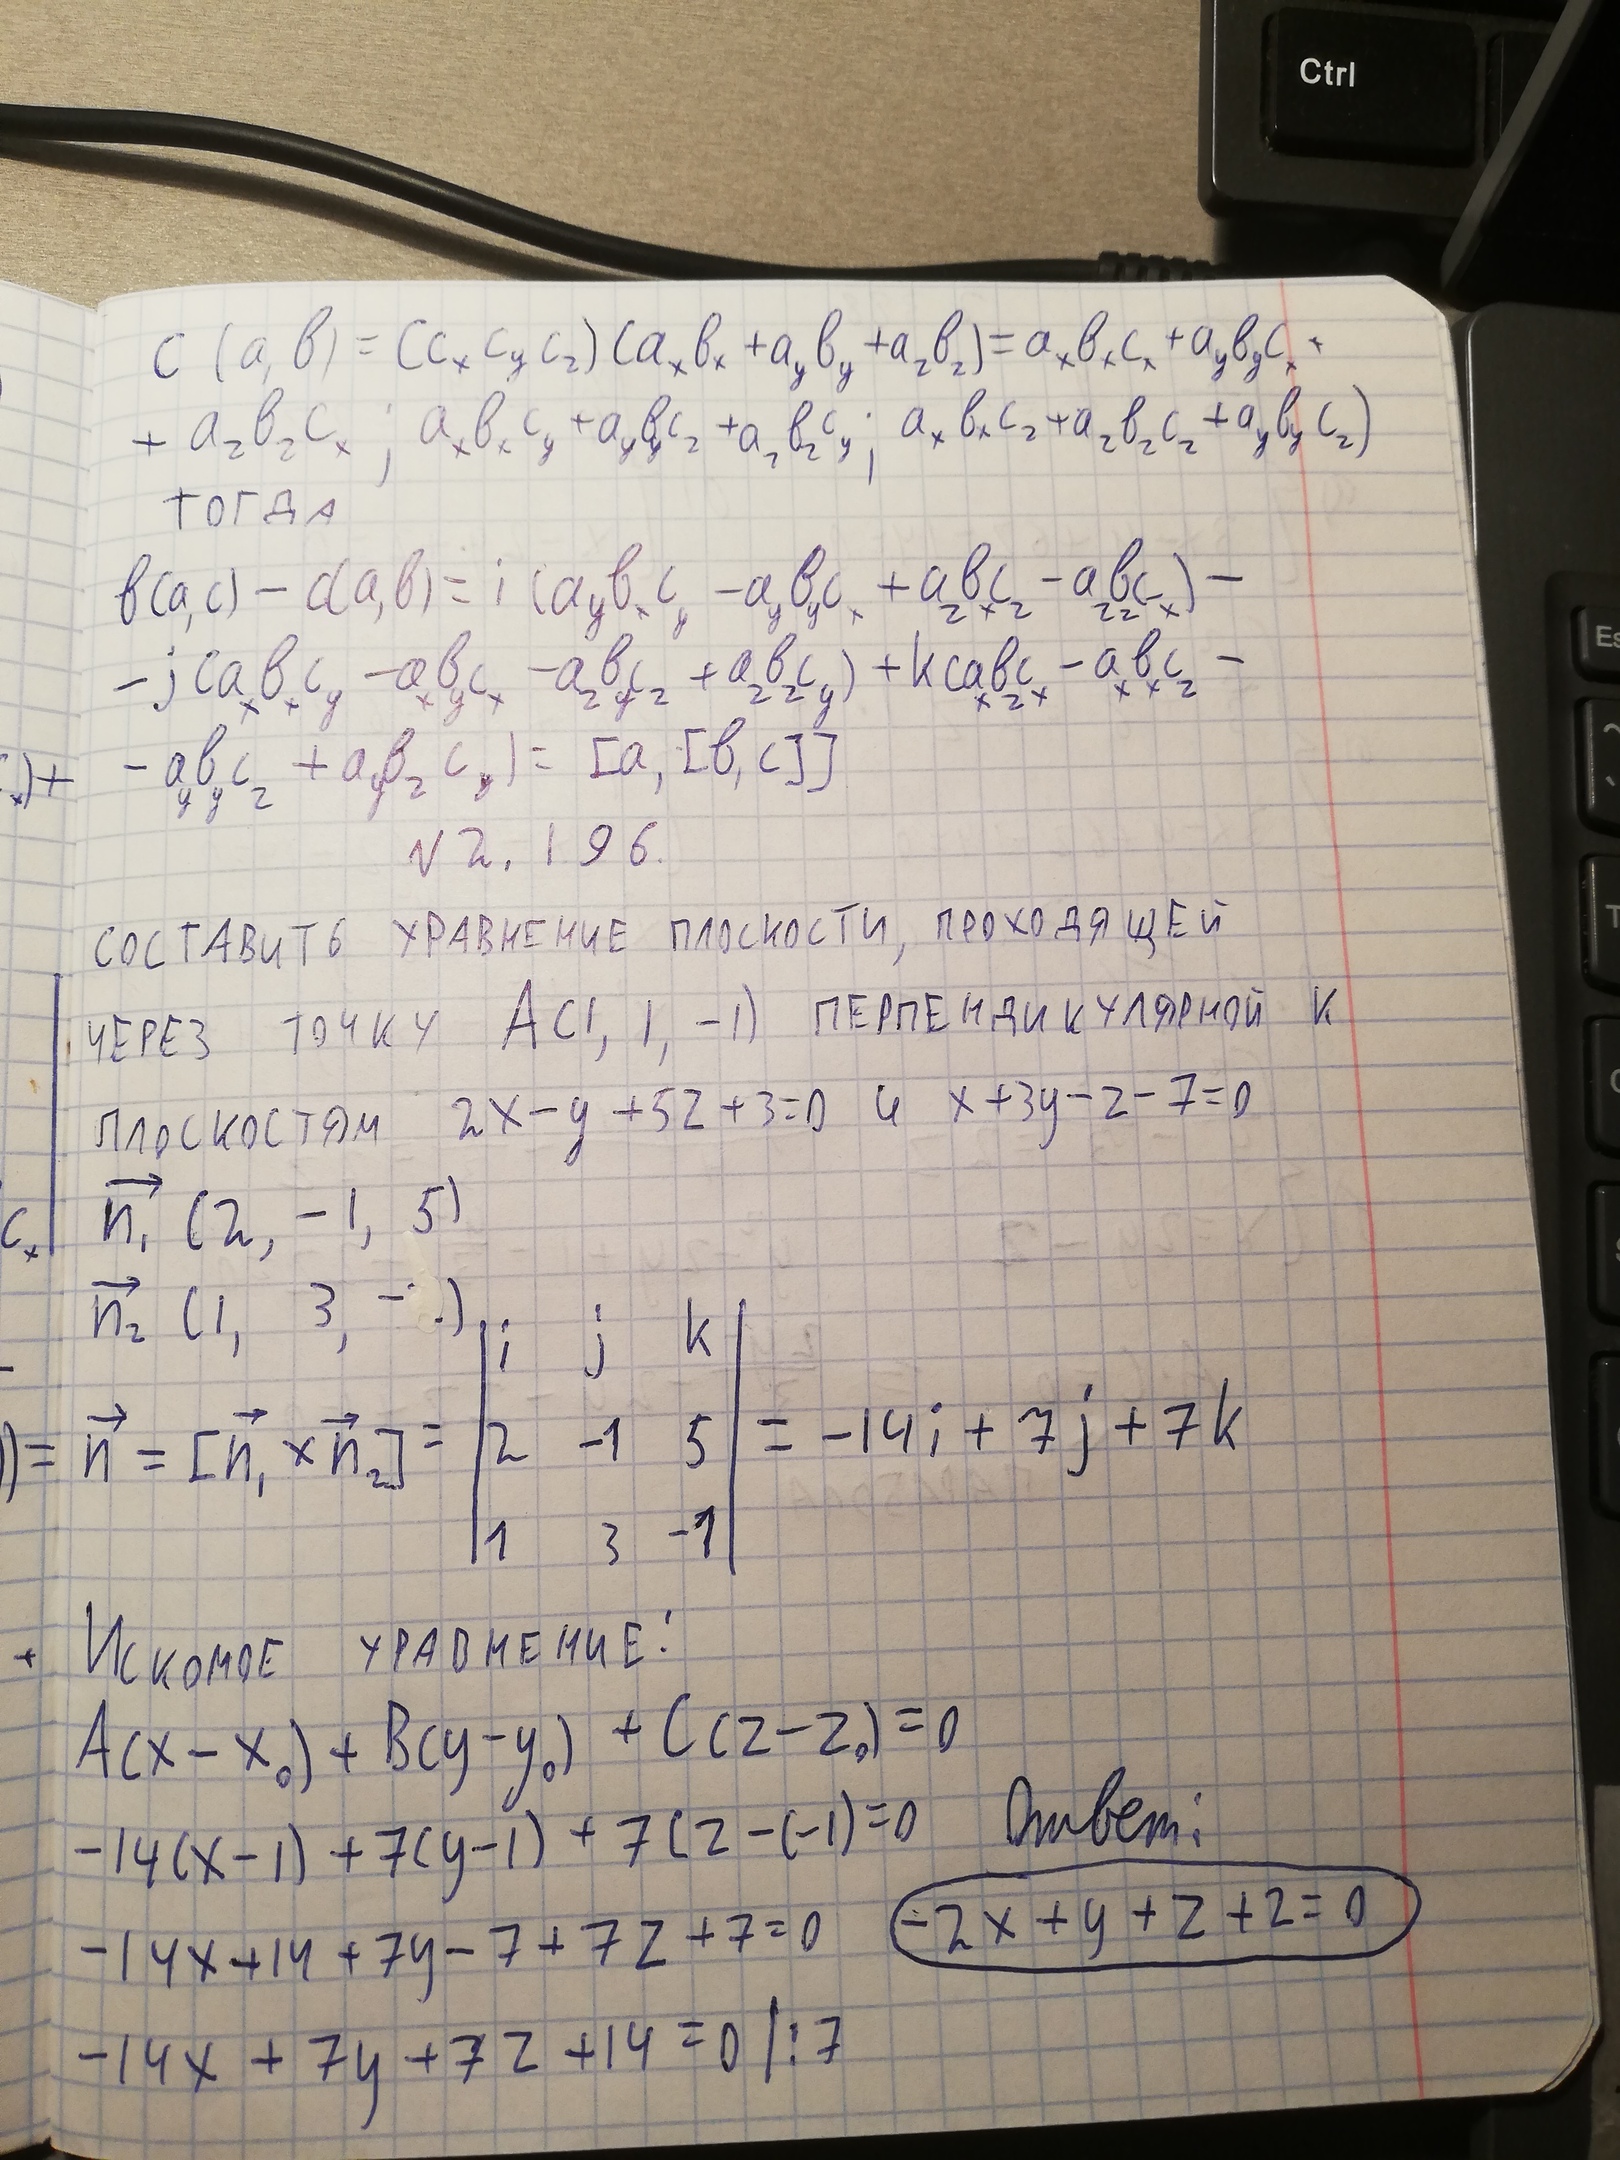 Ctrl
c (a, b) = (cₓ c_y c_z) (aₓbₓ + a_y b_y + a_z b_z) = aₓbₓcₓ + a_y b_y cₓ +
+ a_z b_z cₓ ; aₓbₓc_y + a_y b_y c_z + a_z b_z c_y ; aₓbₓc_z + a_z b_z c_z + a_y b_y c_z)
ТОГДА
b(a,c) - c(a,b) = i (a_y bₓ c_y - a_y b_y cₓ + a_z bₓ c_z - a_z b_z cₓ) -
- j (aₓbₓc_y - aₓb_y cₓ - a_z b_y c_z + a_z b_z c_y) + k(aₓb_z cₓ - aₓbₓc_z -
ₓ)+ - a_y b_y c_z + a_y b_z c_y) = [a, [b, c]]
N 2.196.
СОСТАВИТЬ УРАВНЕНИЕ ПЛОСКОСТИ, ПРОХОДЯЩЕЙ
ЧЕРЕЗ ТОЧКУ A(1, 1, -1) ПЕРПЕНДИКУЛЯРНОЙ К
ПЛОСКОСТЯМ 2x - y + 5z + 3 = 0 и x + 3y - z - 7 = 0
cₓ n⃗₁ (2, -1, 5)
n⃗₂ (1, 3, - )
i j k
)= n⃗ = [n⃗₁ × n⃗₂] = 2 -1 5 = -14i + 7j + 7k
1 3 -1
+ ИСКОМОЕ УРАВНЕНИЕ:
A(x - x₀) + B(y - y₀) + C(z - z₀) = 0
-14(x - 1) + 7(y - 1) + 7(z - (-1) = 0 Ответ:
-14x + 14 + 7y - 7 + 7z + 7 = 0 -2x + y + z + 2 = 0
-14x + 7y + 7z + 14 = 0 | : 7